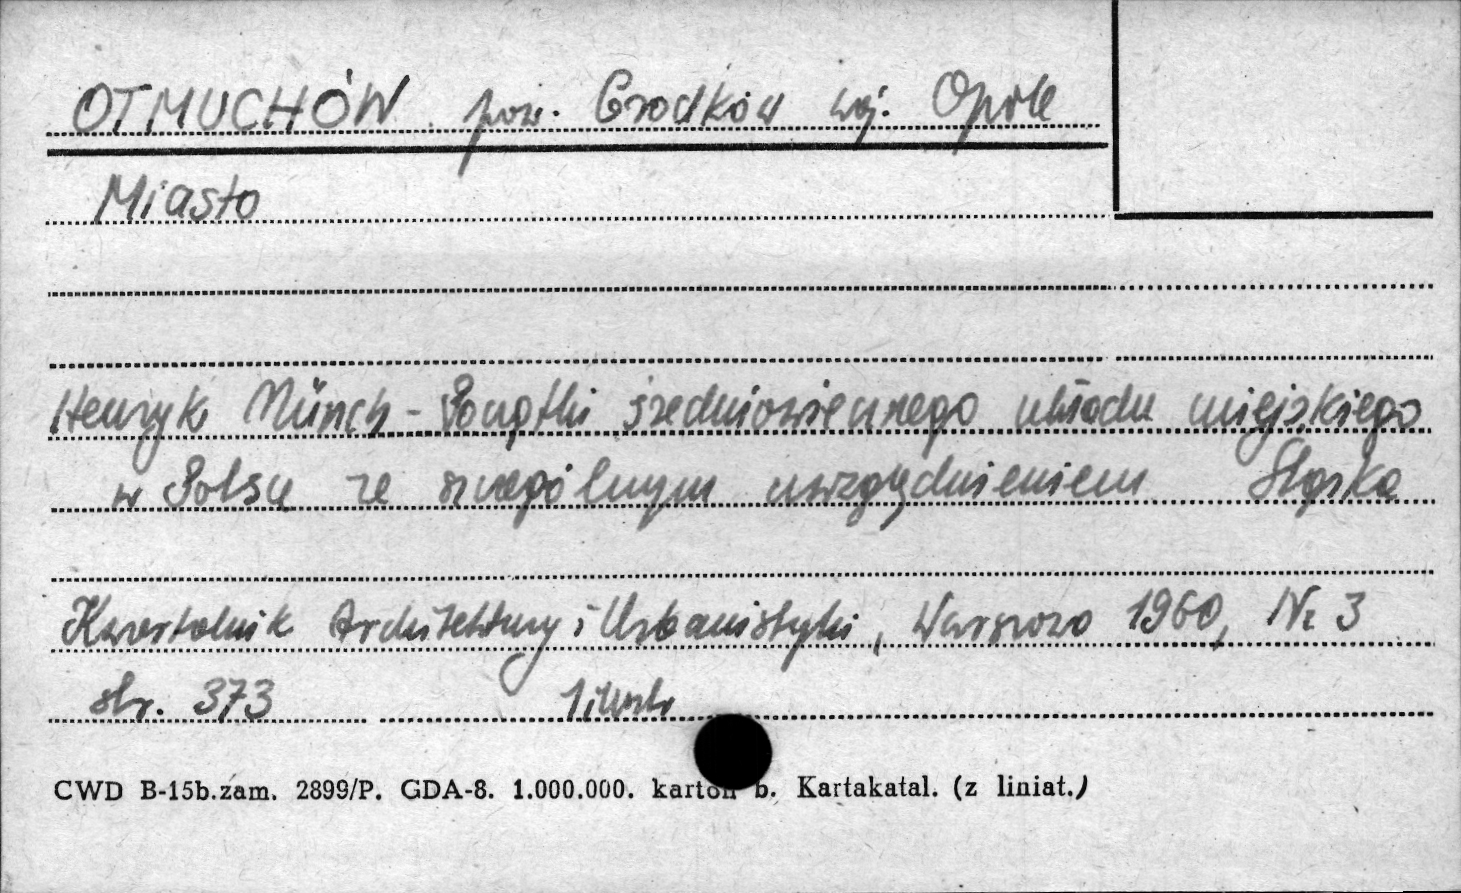 OTMUCHÓW pow. Grodków woj. Opole
Miasto
Henryk Münch - Początki średniowiecznego układu miejskiego
w Polsce ze szczególnym uwzględnieniem Śląska
Kwartalnik Architektury i Urbanistyki, Warszawa 1960, Nr 3
str. 373 1 ilustr.
CWD B-15b.zam. 2899/P. GDA-8. 1.000.000. karton b. Kartakatal. (z liniat.)